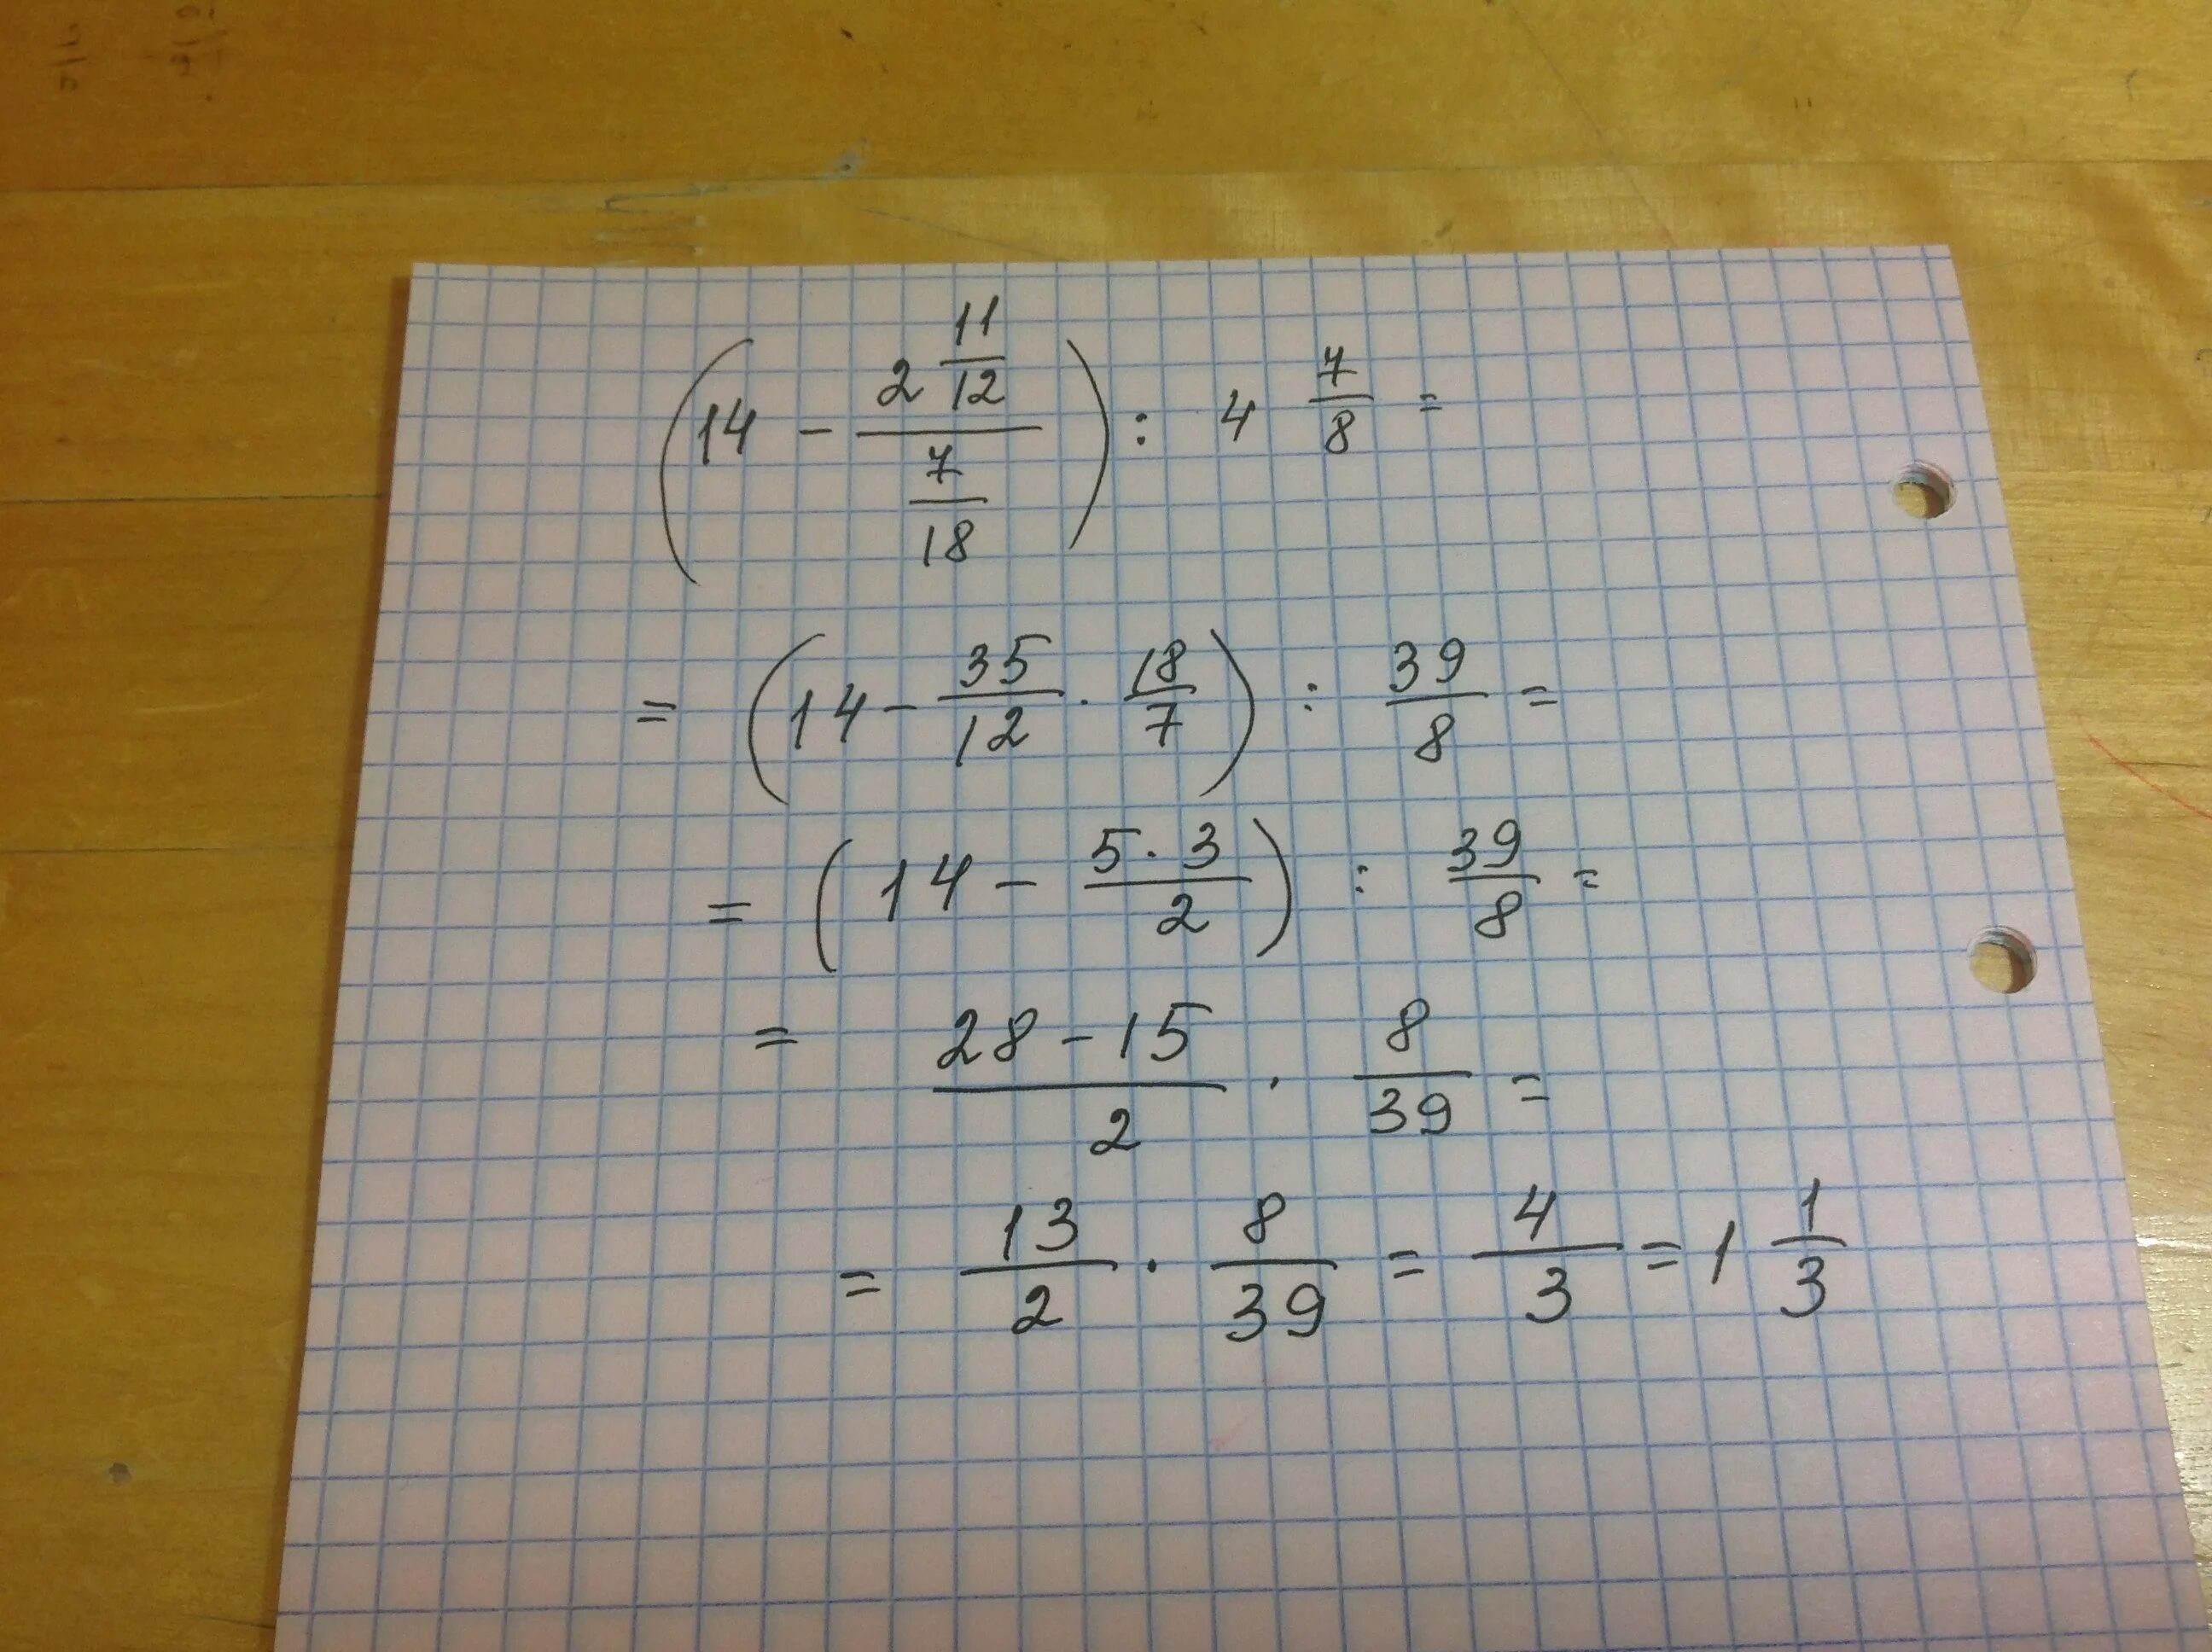 (14 - (2 11/12)/(7/18)) : 4 7/8 =
= (14 - 35/12 · 18/7) : 39/8 =
= (14 - (5·3)/2) : 39/8 =
= (28-15)/2 · 8/39 =
= 13/2 · 8/39 = 4/3 = 1 1/3